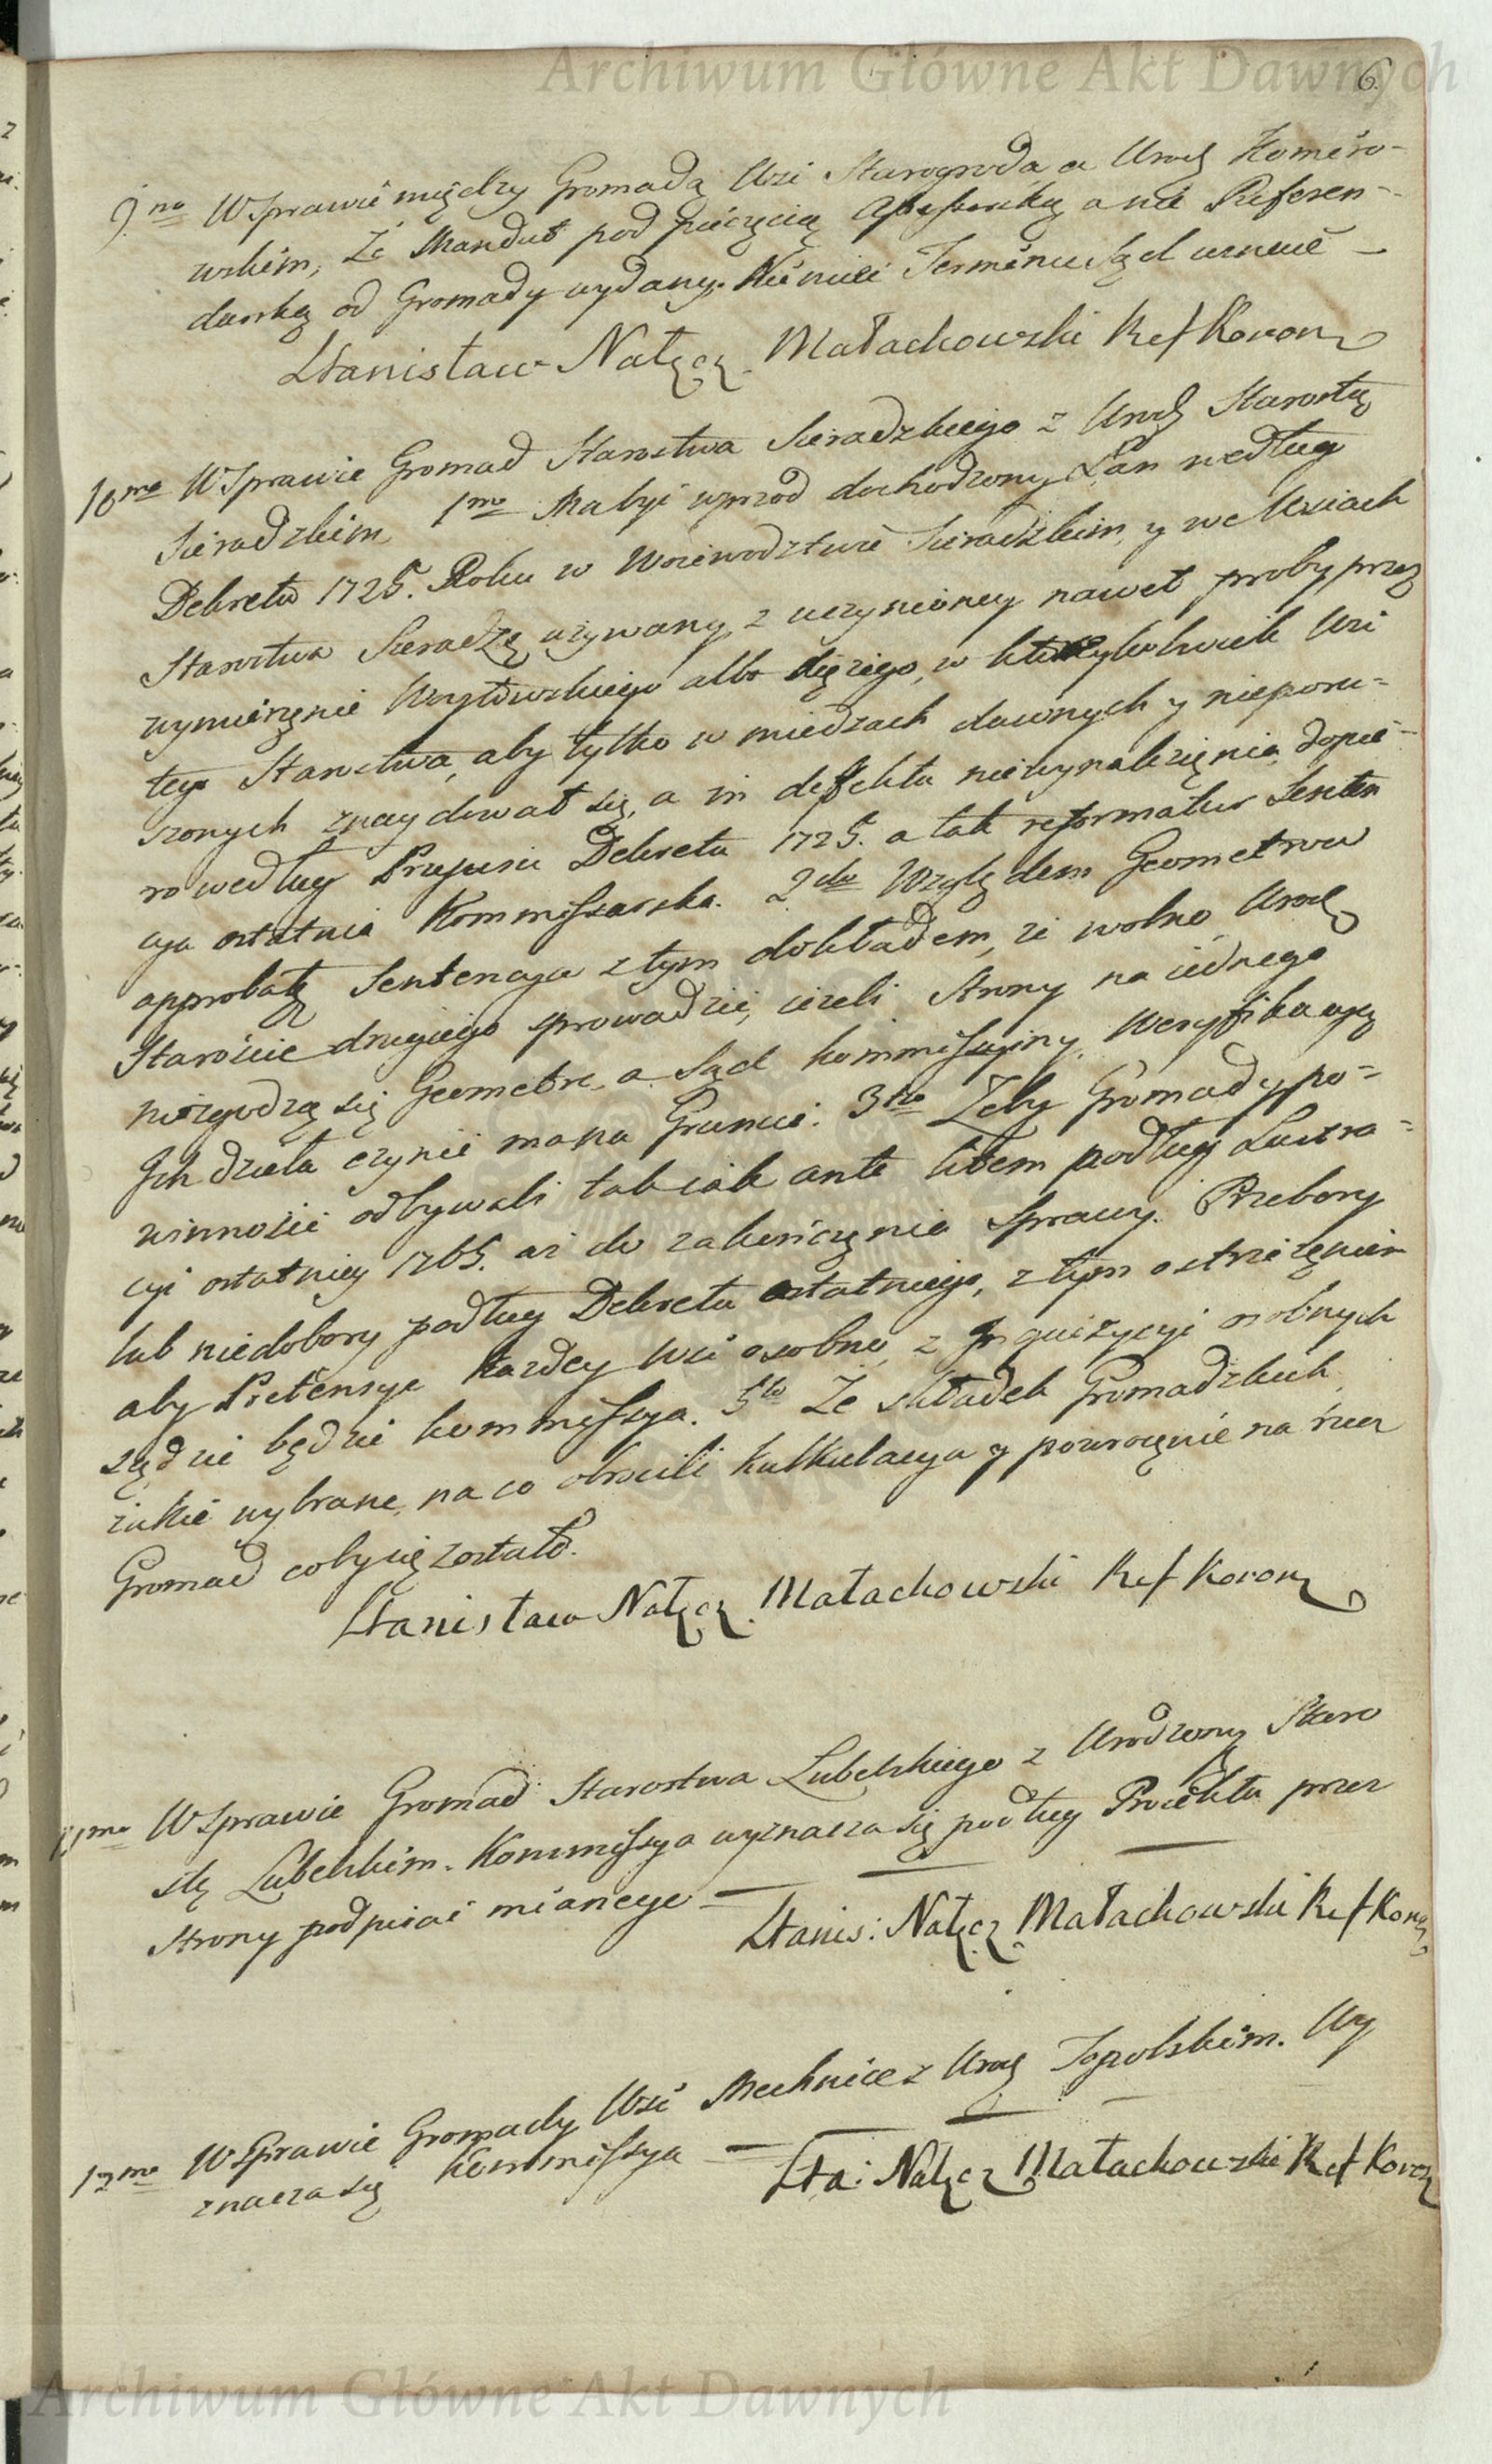 Archiwum Główne Akt Dawnych
6.
9no W Sprawie między Gromadą Wsi Starogroda a Urodz Komoro-
wskim, że Mandat pod pieczęcią Assessorską a nie Referen-
darską od Gromady wydany. Nie mieć Terminu Sąd uznaie —
Stanisław Nałęcz Małachowski Ref Koronny
10mo W Sprawie Gromad Starostwa Sieradzkiego z Urodz Starostą
Sieradzkim 1mo Ma być wprzod dochodzony Łan według
Dekretu 1725. Roku w Woiewodztwie Sieradzkim, y we Wsiach
Starostwa Sieradz używany, z uczynioney nawet proby, przez
wymierzęnie albo tęgiego, w ktoreykolwiek Wsi
tego Starostwa, aby tylko w miedzach dawnych y nieporu-
szonych znaydował się, a in defektu niewynalezięnia, dopie-
ro według Przepisu Dekretu 1725. a tak reformatur Senten
cya ostatnia Kommissarska. 2do Względem Geometrow
approbatę Sentencya z tym dokładem, że wolno Urodz
Starościе drugiego sprowadzić, ieżeli Strony na iednego
niezgodzą się Geometrę, a Sąd kommissyiny, Weryfikacyą
Ich dzieła czynić ma na Gruncie. 3tio Żeby Gromady po-
winności odbywali tak iak ante litem podług Lustra-
cyi ostatniey 1765. aż do zakończęnia Sprawy. Przebory
lub niedobory podług Dekretu ostatniego, z tym ostrzeżęniem
aby Pretensye każdey Wsi osobno, z Inquizycyi osobnych
sądzić będzie kommissya. 5to Że składek Gromadzkich,
iakie wybrane, na co obrocili kalkulacya y powrocęnie na rzecz
Gromad coby się zostało.
Stanisław Nałęcz Małachowski Ref Koronny
11mo W Sprawie Gromad Starostwa Lubelskiego z Urodzony Staro
stą Lubelskim. Kommissya wyznacza się podług Proiektu przez
Strony podpisać mianego —
Stanis: Nałęcz Małachowski Ref Kor
12mo W Sprawie Gromady Wsi Mechnice z Urodz Topolskim. Wy
znacza się Kommissya —
Sta: Nałęcz Małachowski Ref Kor
Archiwum Główne Akt Dawnych